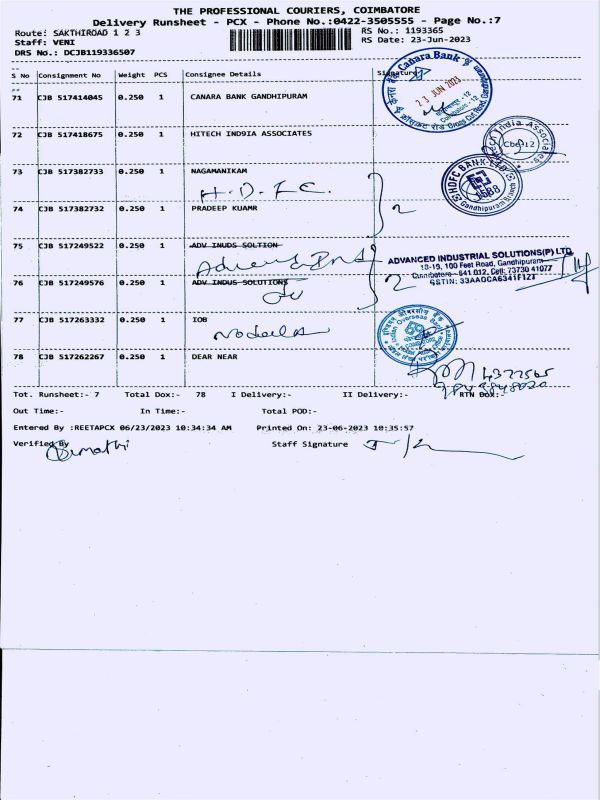 THE PROFESSIONAL COURIERS, COIMBATORE
Delivery Runsheet - PCX - Phone No.:0422-3505555 - Page No.:7
Route: SAKTHIROAD 1 2 3
RS No.: 1193365
Staff: VENI
RS Date: 23-Jun-2023
DRS No.: DCJB119336507
S No Consignment No Weight PCS Consignee Details Signature
71 CJB 517414045 0.250 1 CANARA BANK GANDHIPURAM
Canara Bank
23 JUN 2023
72 CJB 517418675 0.250 1 HITECH IND9IA ASSOCIATES
Hitech India Associates
Cbe-12
73 CJB 517382733 0.250 1 NAGAMANIKAM
H.D.F.C.
HDFC BANK LTD
Gandhipuram Branch
74 CJB 517382732 0.250 1 PRADEEP KUAMR
2
75 CJB 517249522 0.250 1 ADV INUDS SOLTION
ADVANCED INDUSTRIAL SOLUTIONS(P) LTD
18-19, 100 Feet Road, Gandhipuram
Coimbatore - 641 012, Cell: 73730 41077
GSTIN: 33AAOCA6341F1ZT
76 CJB 517249576 0.250 1 ADV INDUS SOLUTIONS
2
77 CJB 517263332 0.250 1 IOB
Indian Overseas Bank
78 CJB 517262267 0.250 1 DEAR NEAR
Tot. Runsheet:- 7 Total Dox:- 78 I Delivery:- II Delivery:- RTN Dox:-
Out Time:- In Time:- Total POD:-
Entered By :REETAPCX 06/23/2023 10:34:34 AM Printed On: 23-06-2023 10:35:57
Verified By
Staff Signature